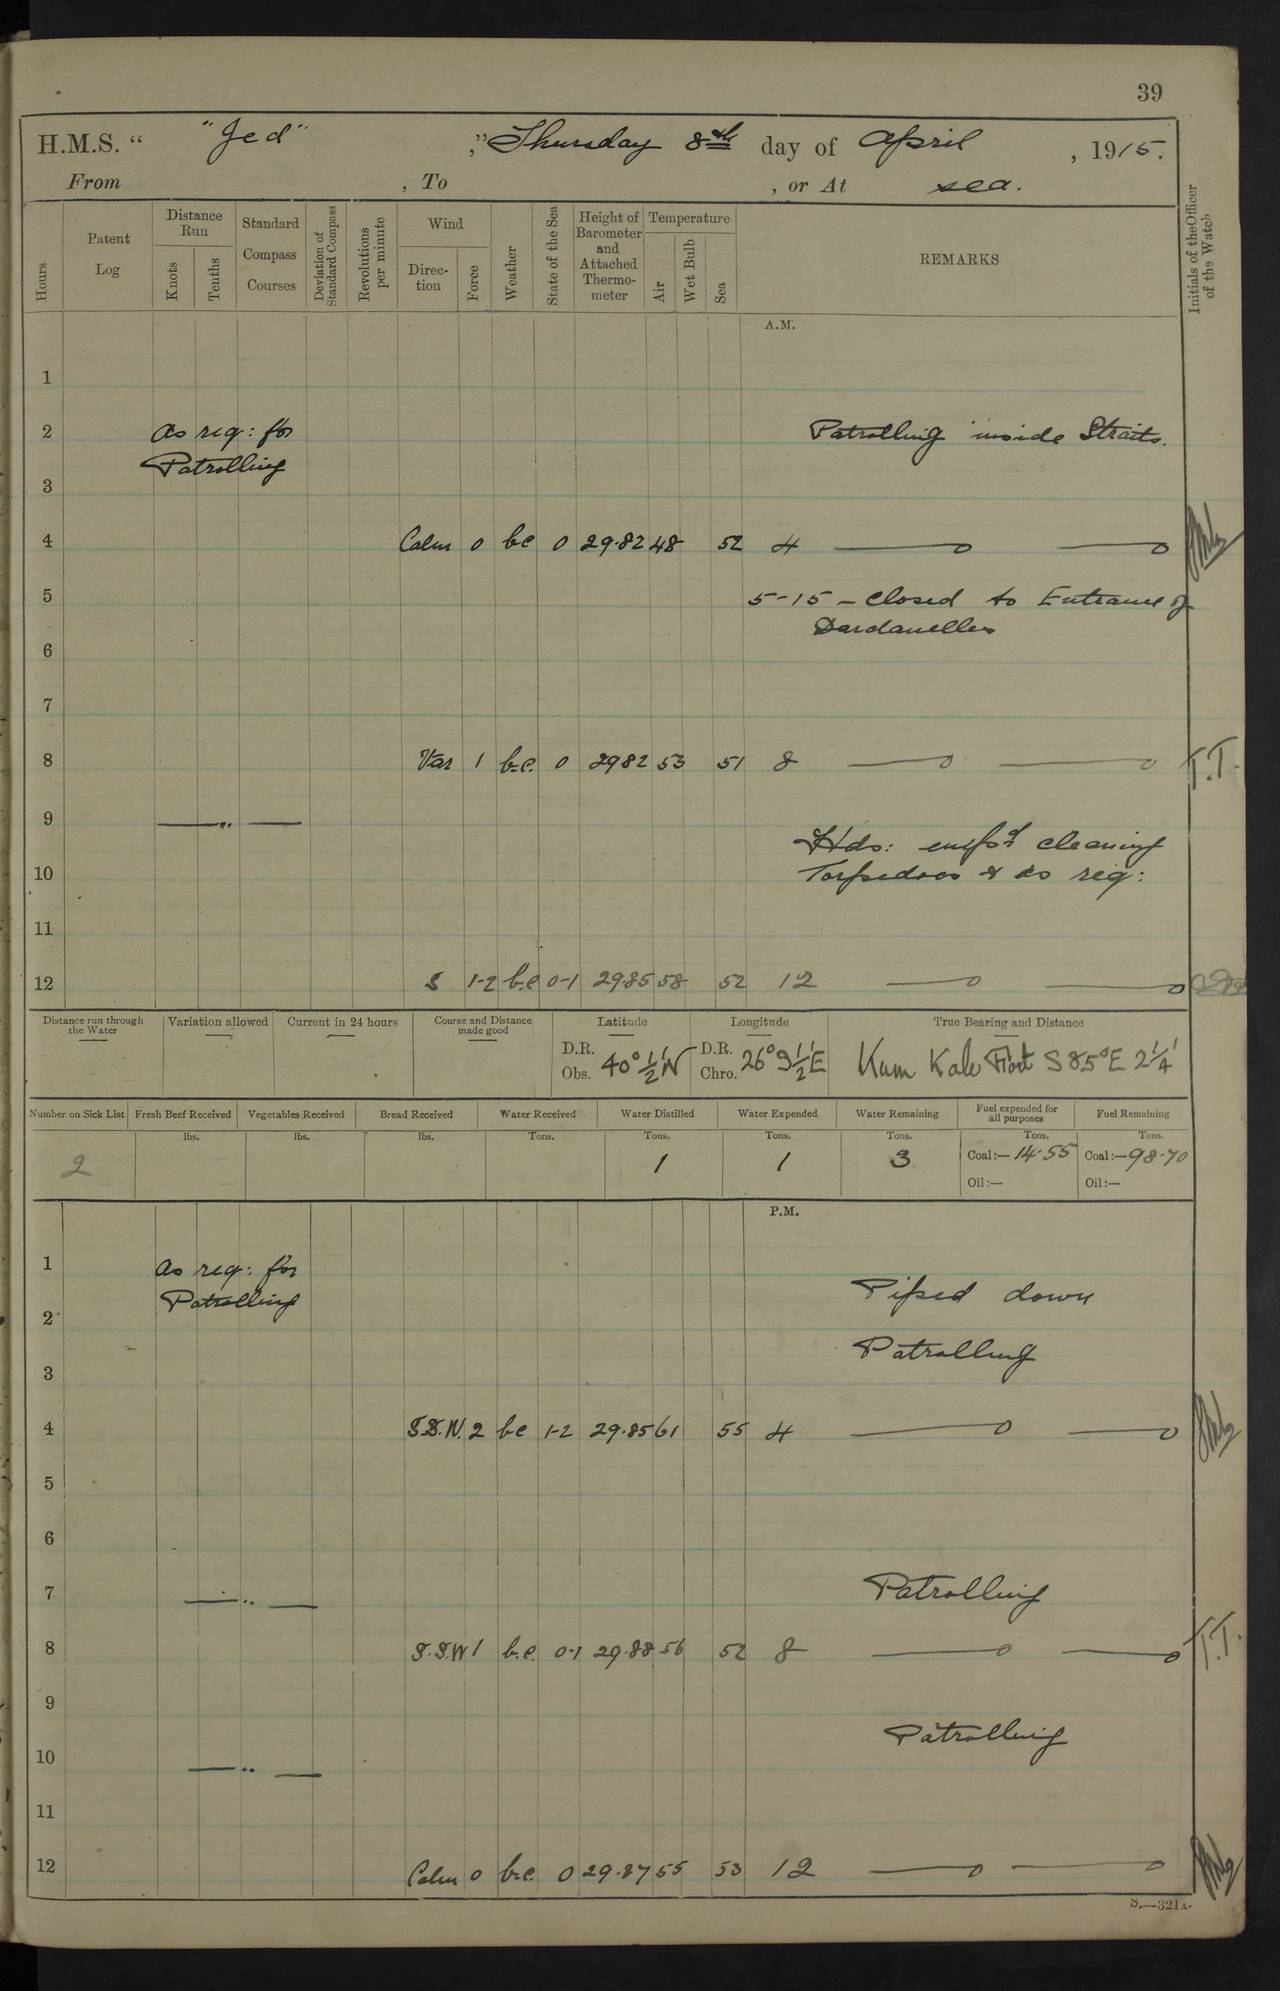 39
H.M.S. “ "Jed" ,” Thursday 8th day of April , 1915.
From , To , or At sea.
Hours
Patent Log
Distance Run
Knots
Tenths
Standard Compass Courses
Deviation of Standard Compass
Revolutions per minute
Wind
Direction
Force
Weather
State of the Sea
Height of Barometer and Attached Thermometer
Temperature
Air
Wet Bulb
Sea
REMARKS
Initials of the Officer of the Watch
A.M.
1
2 As req: for Patrolling inside Straits.
Patrolling
3
4 Calm 0 bc 0 29.82 48 52 4
5 5-15 – Closed to Entrance of
Dardanelles
6
7
8 Var 1 b.c. 0 2982 53 51 8 T.T.
9 — " —
Hds: empd cleaning
10 Torpedoes & as req:
11
12 S 1-2 b.c 0-1 29.85 58 52 12
Distance run through the Water
Variation allowed
Current in 24 hours
Course and Distance made good
Latitude
Longitude
True Bearing and Distance
D.R. Obs. 40° ½' N
D.R. Chro. 26° 9½' E
Kum Kale Fort S 85° E 2¼'
Number on Sick List
Fresh Beef Received
Vegetables Received
Bread Received
Water Received
Water Distilled
Water Expended
Water Remaining
Fuel expended for all purposes
Fuel Remaining
lbs. lbs. lbs. Tons. Tons. Tons. Tons. Tons. Tons.
2 1 1 3 Coal:— 14.55 Coal:— 98.70
Oil:— Oil:—
P.M.
1 As req: for
Patrolling Piped down
2
Patrolling
3
4 S.S.W. 2 bc 1-2 29.85 61 55 4
5
6
7 — " — Patrolling
8 S.S.W 1 b.c. 0-1 29.88 56 52 8 T.T.
9
Patrolling
10 — " —
11
12 Calm 0 b.c. 0 29.87 55 53 12
S.—321A.